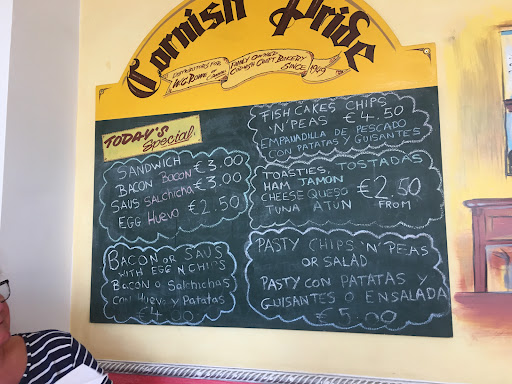 Cornish Pride
DISTRIBUTORS FOR
W.C. ROWE
FAMILY OWNED
CORNISH CRAFT BAKERY
SINCE 1949
TODAY'S
Special
SANDWICH
BACON BACON €3.00
SAUS SALCHICHA €3.00
EGG HUEVO €2.50
BACON OR SAUS
WITH EGG N CHIPS
BACON O SALCHICHAS
CON HUEVO Y PATATAS
FISH CAKES CHIPS
'N' PEAS €4.50
EMPANADILLA DE PESCADO
CON PATATAS Y GUISANTES
TOASTIES, TOSTADAS
HAM JAMON
CHEESE QUESO €2.50
TUNA ATÚN FROM
PASTY CHIPS 'N' PEAS
OR SALAD
PASTY CON PATATAS Y
GUISANTES O ENSALADA
€5.00